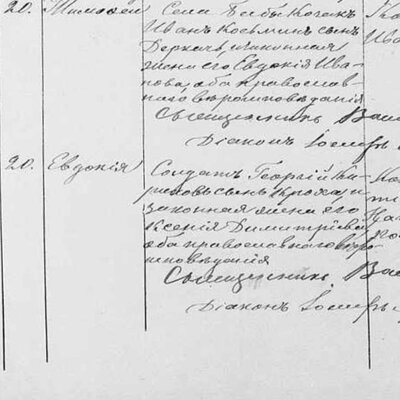 20. Тимофей Села Бабы Козакъ
Иванъ Косьминъ сынъ
Деркачъ, и законная
жена его Евдокія Ива-
нова, оба православ-
наго вѣроисповѣданія
Священникъ
Діаконъ Іосифъ
20. Евдокія Солдатъ Георгій Ки-
риловъ сынъ и
законная жена его
Ксенія Димитріева
оба православнаго вѣро-
исповѣданія
Священникъ
Діаконъ Іосифъ